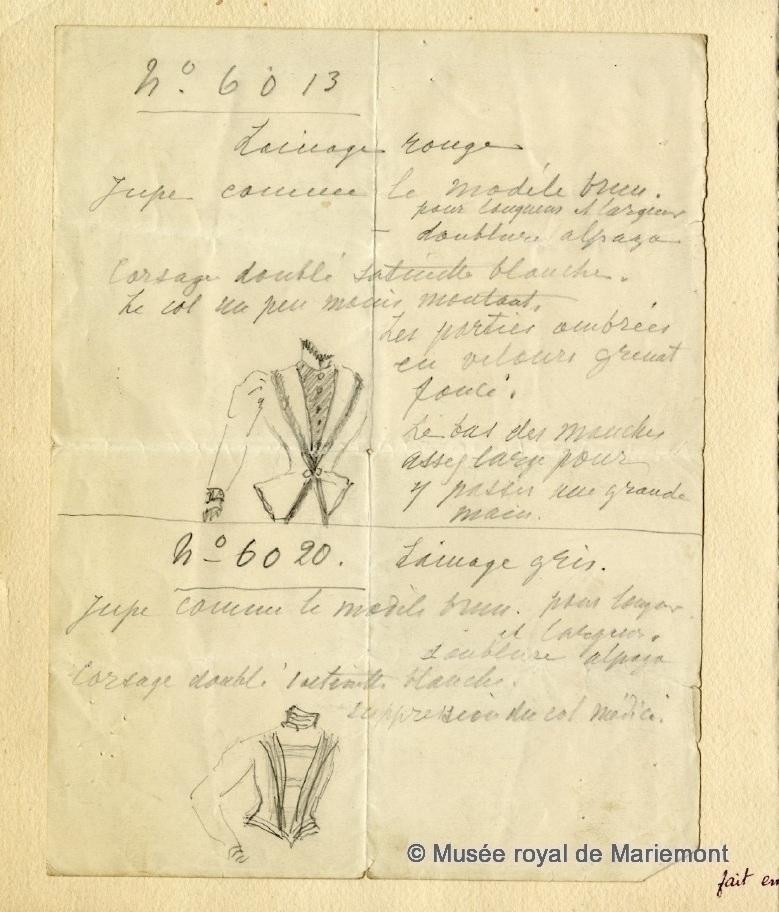 No. 6013
Lainage rouge
Jupe comme le modèle brun.
pour longueur et largeur
- doublure alpaga
Corsage doublé satinette blanche.
Le col un peu moins montant.
Les parties ombrées
en velours grenat
foncé.
Le bas des manches
assez large pour
y passer une grande
main.
No 6020.
Lainage gris.
Jupe comme le modèle brun. pour longueur
et largeur.
doublure alpaga
Corsage doublé satinette blanche.
suppression du col Médici.
© Musée royal de Mariemont
fait en